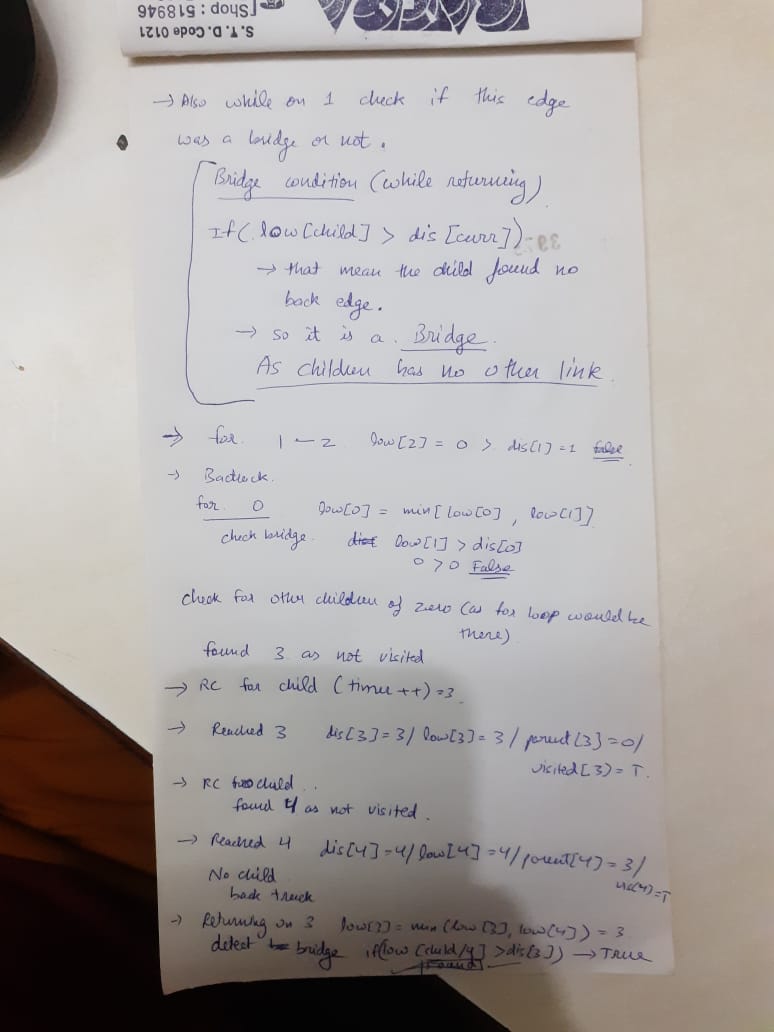 S.T.D. Code 0121
Shop : 518946
→ Also while on 1 check if this edge
was a bridge or not.
Bridge condition (while returning)
If( low[child] > dis [curr])
→ that mean the child found no
back edge.
→ so it is a. Bridge.
As children has no other link.
→ for. 1 - 2 low[2] = 0 > dis[1] = 1 false
→ Backtrack.
for 0 low[0] = min[ low[0] , low[1]]
check bridge. low[1] > dis[0]
0 > 0 False
check for other children of zero (as for loop would be
there)
found 3 as not visited
→ RC for child (timer ++) = 3
→ Reached 3 dis[3] = 3/ low[3] = 3 / parent[3] = 0/
visited[3] = T.
→ RC child ..
found 4 as not visited.
→ Reached 4 dis[4] = 4/ low[4] = 4/ parent[4] = 3/
vis[4] = T
No child
back track
→ Returning on 3 low[3] = min (low [3], low[4]) = 3
detect bridge if(low [child/4] > dis[3]) → TRUE
Found